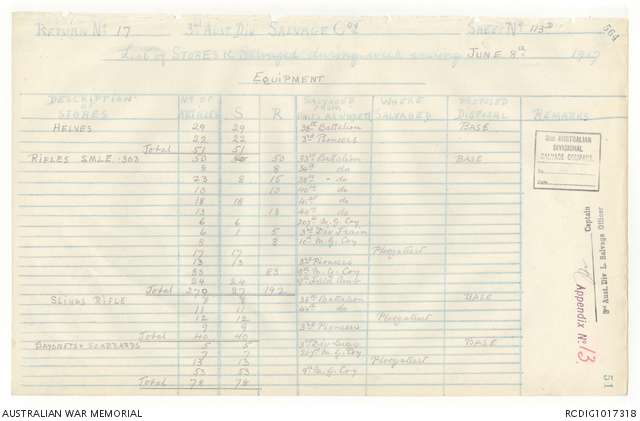 Return No 17 3rd Aust. Div. Salvage Coy Sheet No 113 564
List of Stores &c Salvaged during week ending June 8th 1917
Equipment
Description of Stores No of Articles S R Salvaged from Where Salvaged Disposal Remarks
Helves 29 29 38th Battalion Base
22 22 3rd Pioneers
Total 51 51
Rifles SMLE .303 50 50 33rd Battalion Base
8 8 do
23 8 15 do
10 10 do
18 18 do
13 13 do
6 6 M.G. Coy
6 1 5 3rd Div Train
8 8 M.G. Coy
17 17 Ploegstert
13 13 3rd Pioneers
83 83 M.G. Coy
24 24 Field Amb
Total 279 87 192
Slings Rifle 8 8 Battalion Base
11 11 do
12 12 Ploegstert
9 9 3rd Pioneers
Total 40 40
Bayonets & Scabbards 5 5 Base
7 7 M.G. Coy
13 13 Ploegstert
53 53 9th M.G. Coy
Total 78 78
3rd AUSTRALIAN
DIVISIONAL
SALVAGE COMPANY.
No.
Date
Captain
3rd Aust. Div L. Salvage Officer
Appendix No 13
51
AUSTRALIAN WAR MEMORIAL RCDIG1017318